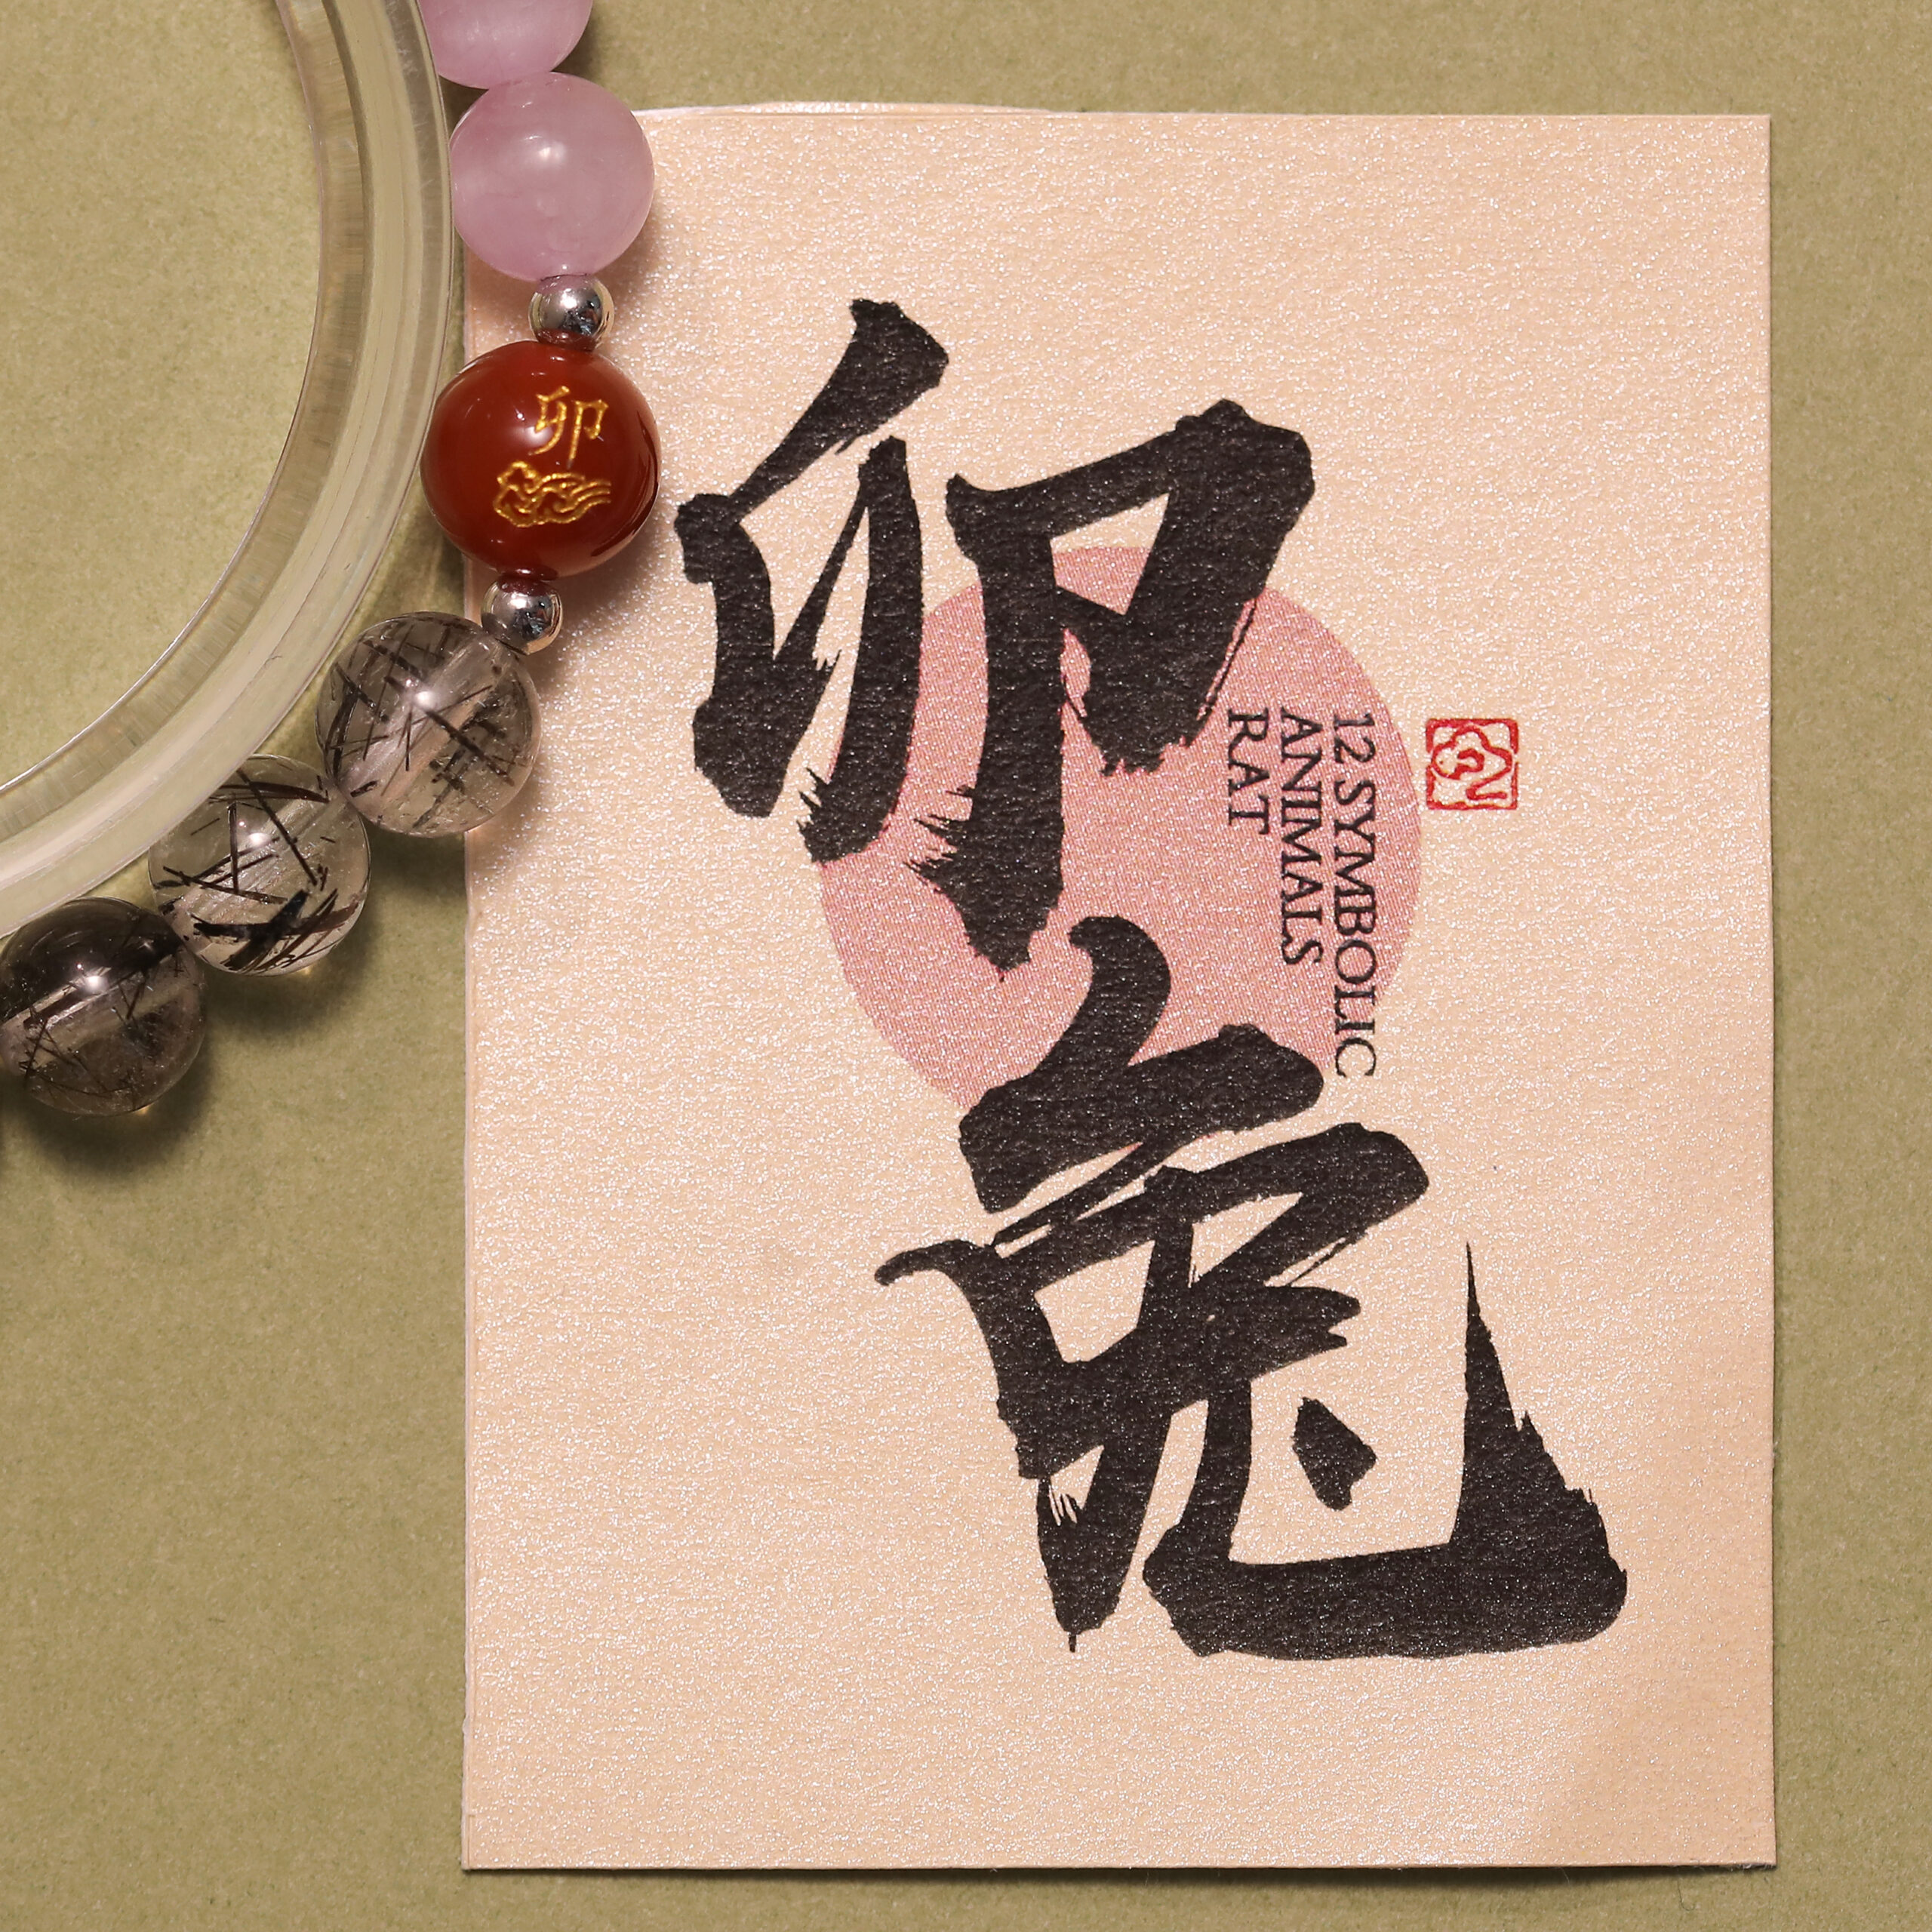 卯
卯兔
12 SYMBOLIC
ANIMALS
RAT